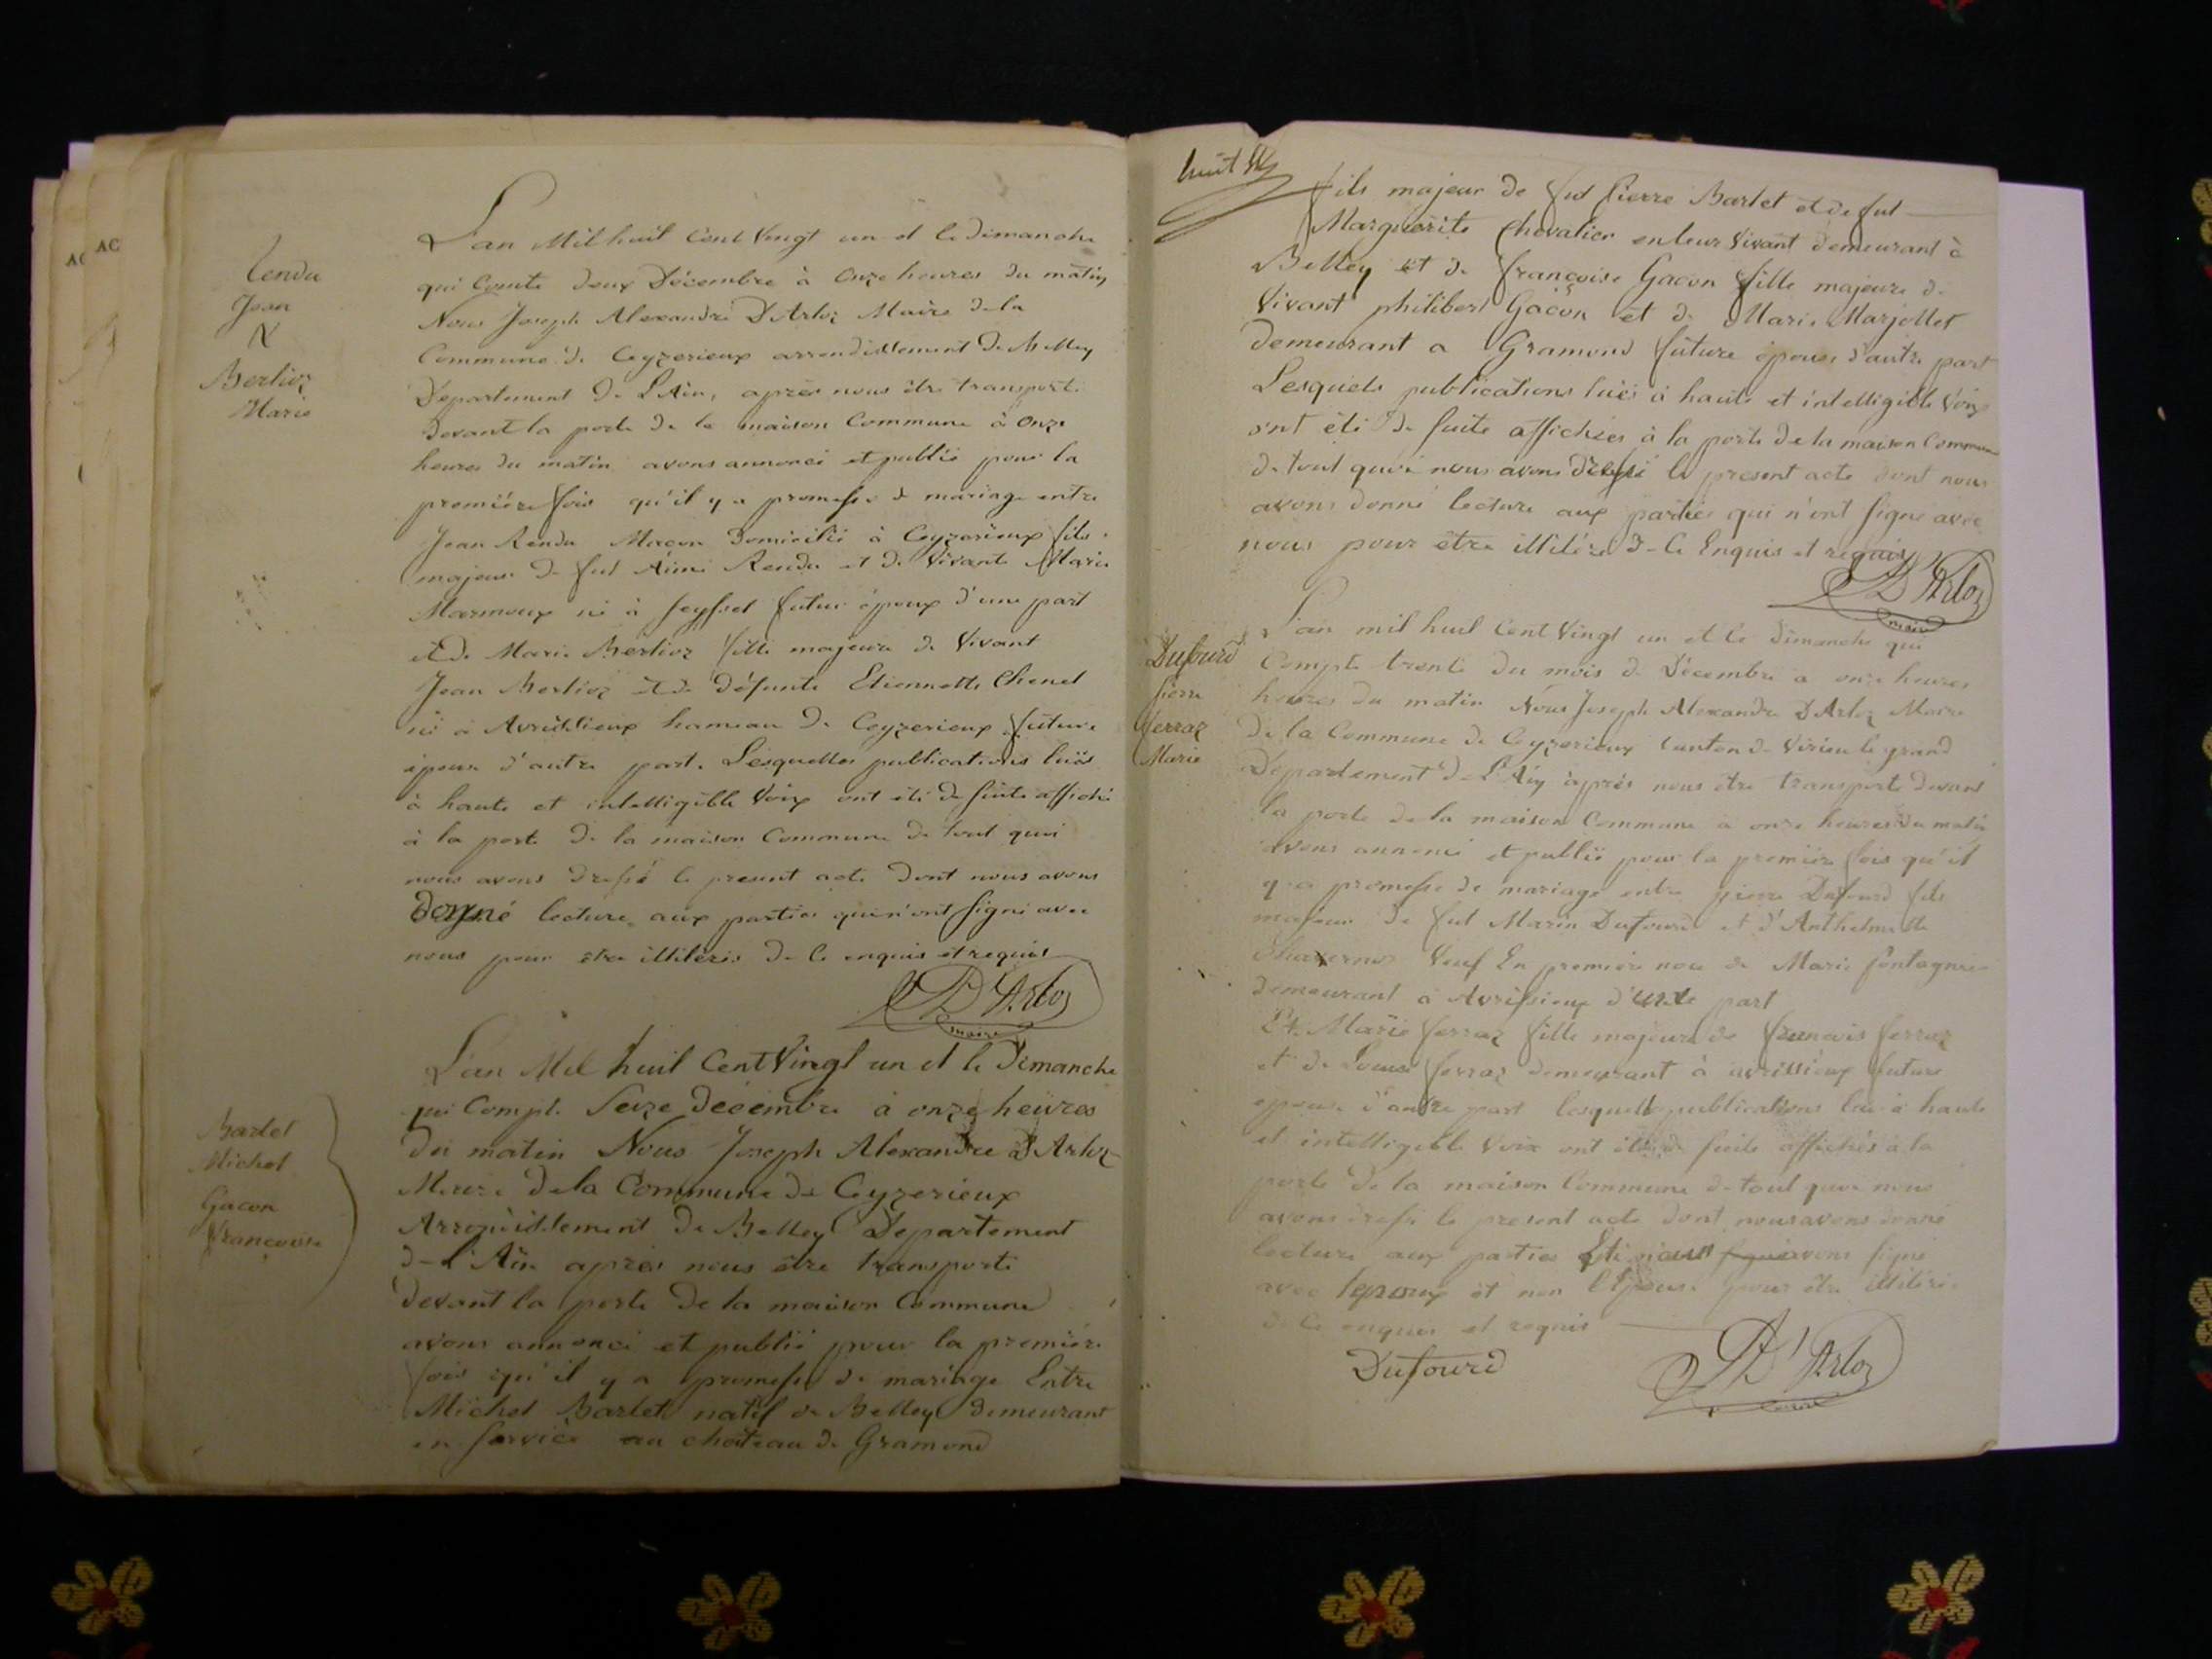 AC
AC
Rendu
Jean
N
Berlioz
Marie
L'an Mil huit Cent Vingt un et le dimanche
qui Comte deux Décembre à Onze heures du matin
Nous Joseph Alexandre D'Arloz Maire de la
Commune de Ceyzerieux arrondissement de Belley
Département de L'Ain, après nous être transporté
devant la porte de la maison Commune à Onze
heures du matin avons annoncé et publié pour la
première fois qu'il y a promesse de mariage entre
Jean Rendu Maçon Domicilié à Ceyzerieux fils
majeur de fut Aimé Rendu et de Vivante Marie
Marmoux né à Seyssel futur époux d'une part
et de Marie Berlioz fille majeure de Vivant
Jean Berlioz et de défunte Etiennette Chenel
né à Avrissieux hameau de Ceyzerieux future
épouse d'autre part. Lesquelles publications luës
à haute et intelligible Voix ont été de suite affiché
à la porte de la maison Commune de tout quoi
nous avons dressé le present acte Dont nous avons
Donné lecture aux parties qui n'ont signé avec
nous pour être illiteris de ce enquis et requis
D'Arloz
maire
Barlet
Michel
Gacon
Françoise
L'an Mil huit Cent Vingt un et le Dimanche
qui Compte Seize Décembre à onze heures
du matin Nous Joseph Alexandre D'Arloz
Maire de la Commune de Ceyzerieux
Arrondissement de Belley Departement
de L'Ain après nous être transporté
devant la porte de la maison Commune
avons annoncé et publié pour la première
fois qu'il y a promesse de mariage Entre
Michel Barlet natif de Belley Demeurant
en service au château de Gramond
huit
fils majeur de fut Pierre Barlet et de fut
Marguerite Chevalier en leur Vivant demeurant à
Belley et de françoise Gacon fille majeure de
Vivant philibert Gacon et de Marie Marjollet
Demeurant a Gramond future épouse d'autre part
Lesquels publications luës à haute et intelligible Voix
ont été de suite affichées à la porte de la maison Commune
de tout quoi nous avons dressé le present acte dont nous
avons donné lecture aux parties qui n'ont signé avec
nous pour être illitéré de ce Enquis et requis
D'Arloz
maire
Dufourd
pierre
ferraz
Marie
L'an mil huit Cent Vingt un et le dimanche qui
Compte trente du mois de Décembre a onze heures
heures du matin Nous Joseph Alexandre D'Arloz Maire
de la Commune de Ceyzerieux Canton de Virieu le grand
Département de L'Ain après nous être transporté devant
la porte de la maison Commune à onze heures du matin
avons annoncé et publié pour la première fois qu'il
y a promesse de mariage entre pierre Dufourd fils
majeur de fut Marin Dufourd et d'Anthelmette
Veuf En première noce de Marie
demeurant à Avrissieux d'une part
Et Marie ferraz fille majeure de francois ferraz
et de Louise ferraz demeurant à avrissieux future
epouse d'autre part lesquelle publications lue à haute
et intelligible Voix ont été de suite affichés à la
porte de la maison Commune de tout quoi nous
avons dressé le present acte dont nous avons donné
lecture aux parties avons signé
avec lepoux et non l'Epouse pour être illitéré
de ce enquis et requis
Dufourd
D'Arloz
maire